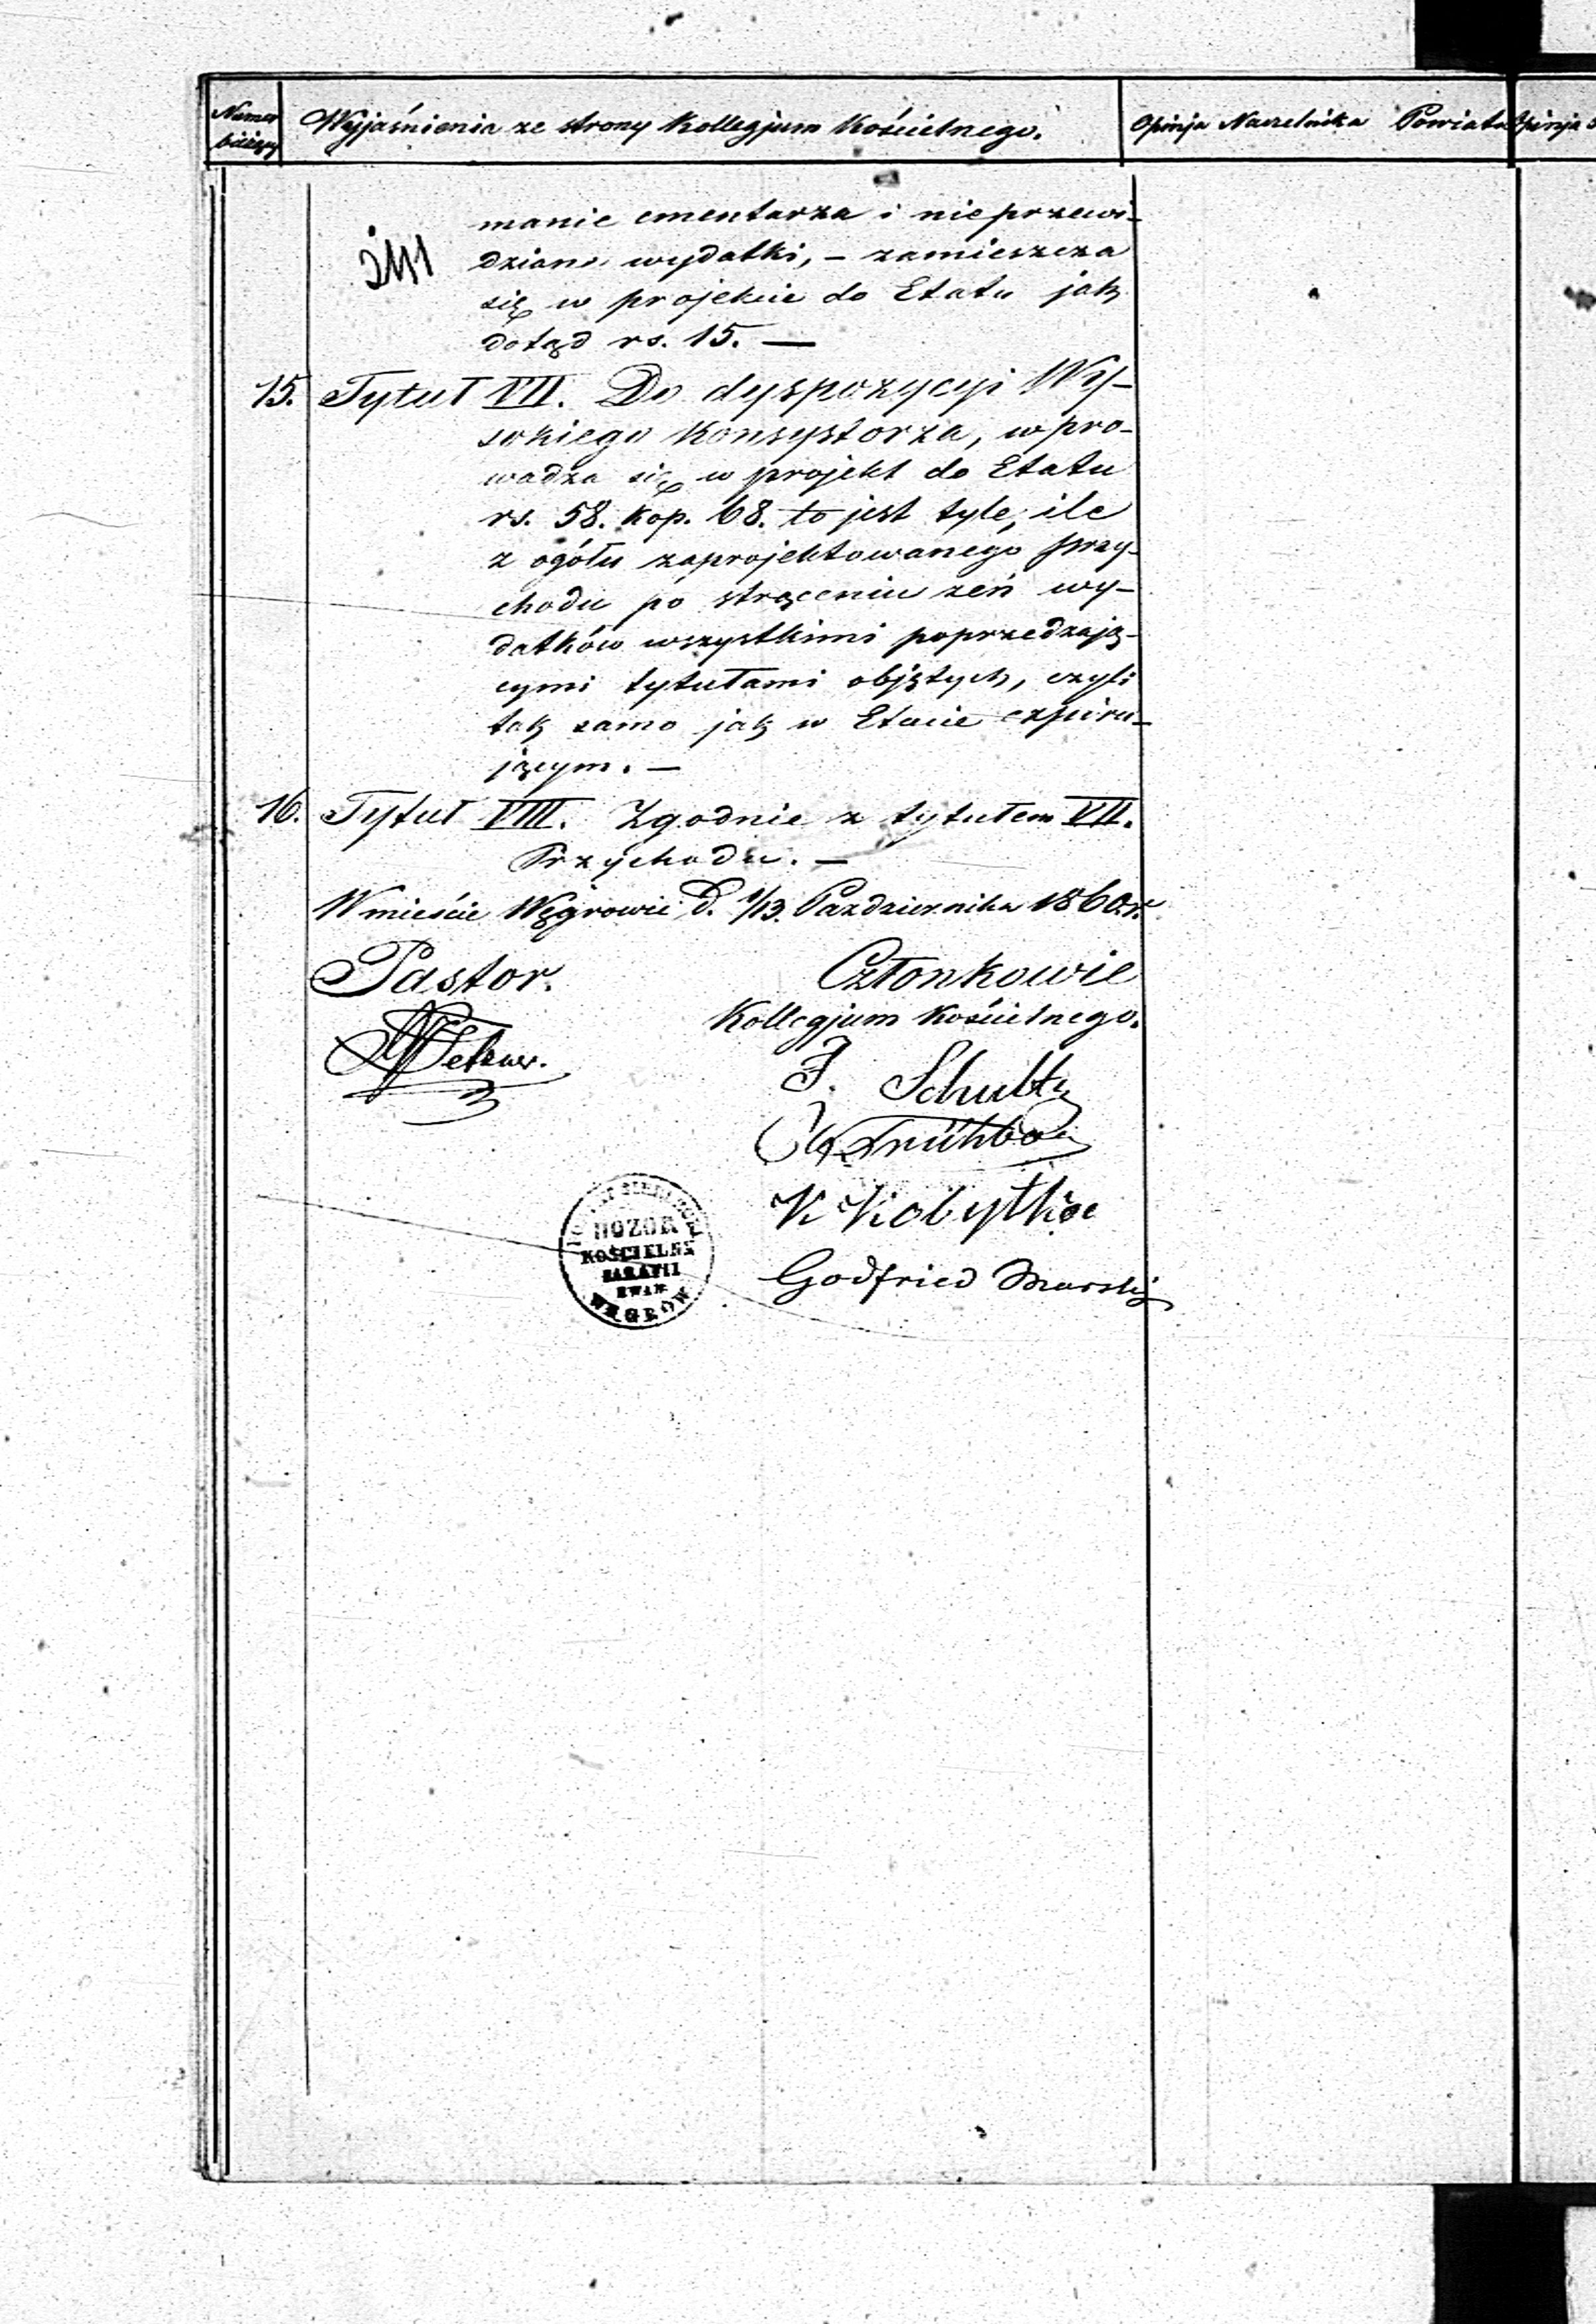 Numer bieżący
Wyjaśnienia ze strony Kollegjum Kościelnego.
Opinja Naczelnika Powiatu
Opinja
manie cmentarza i nieprzewi-
dziane wydatki, – zamieszcza
się w projekcie do Etatu jak
dotąd rs. 15. —
15. Tytuł VII. Do dyspozycyi Wy-
sokiego Konsystorza, wpro-
wadza się w projekt do Etatu
rs. 58. kop. 68. to jest tyle, ile
z ogółu zaprojektowanego przy-
chodu po strąceniu zeń wy-
datków wszystkimi poprzedzają-
cymi tytułami objętych, czyli
tak samo jak w Etacie expiru-
jącym. —
16. Tytuł VIII. Zgodnie z tytułem VII.
Przychodu. —
W mieście Węgrowie d. 1/13. Października 1860. r.
Pastor.
Członkowie
Kollegjum Kościelnego.
J. Schultz
K Kobyłka
Godfried
DOZÓR
KOŚCIELNY
PARAFII
EWAN
WĘGRÓW